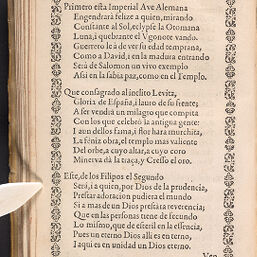 Primero esta Imperial Ave Alemana
Engendrará felize a quien, mirando
Constante al Sol, eclypse la Otomana
Luna, i quebrante el Vgonote vando.
Guerrero le à de ver su edad temprana,
Como a David, i en la madura entrando
Será de Salomon un vivo exemplo
Assi en la sabia paz, como en el Templo.
Que consagrado al inclito Levita,
Gloria de España, i lauro de su frente;
A ser vendrá un milagro que compita
Con los que celebró la antigua gente:
I aun dellos fama, i flor hara murchita,
La fenix obra, el templo mas valiente
Del orbe, a cuyo altar, a cuyo coro
Minerva dà la traça, y Cresso el oro.
Este, de los Filipos el Segundo
Será, i a quien, por Dios de la prudencia,
Prestar adoracion pudiera el mundo
Si a mas de un Dios prestara reverencia;
Que en las personas tiene de secundo
Lo mismo, que de esteril en la essencia,
Pues un eterno Dios alli es en terno,
I aqui es en unidad un Dios eterno.
Ven